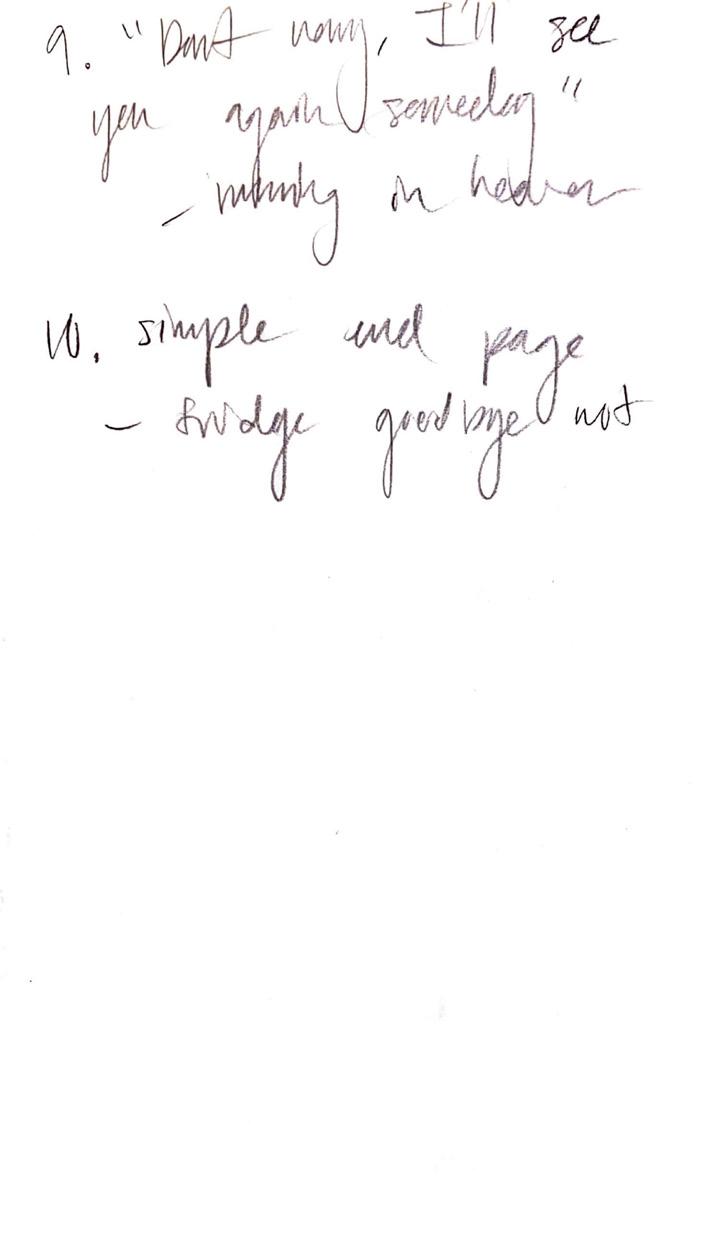 9. "Dont worry, I'll see
you again someday"
- in heaven
10. simple end page
- fridge goodbye not